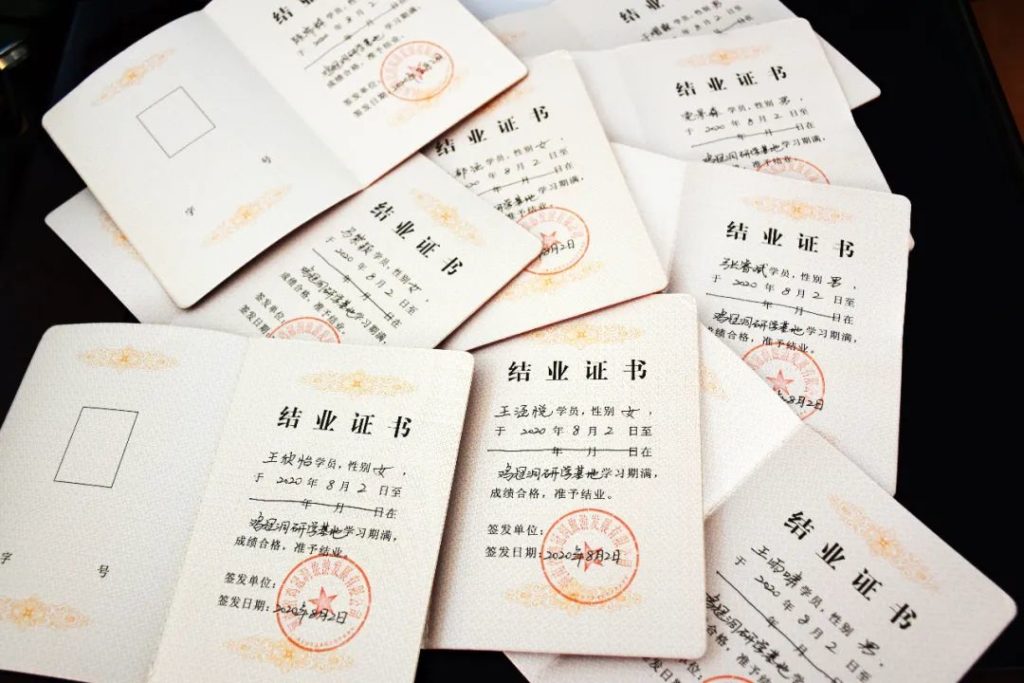 结业证书
于 2020 年 8 月
签发单位:
签发日期:
号
字
结业证书
学员,性别 女
年 8 月 2 日在
学习期满,
准予结业。
8月2日
结业证书
学员,性别 女,
于 2020 年 8 月 2 日至
年 月 日在
鸡冠洞研学基地学习期满,
成绩合格,准予结业。
签发单位:
签发日期:
结业证书
结业证书
学员,性别 男,
于 2020 年 8 月 2 日至
年 月 日在
鸡冠洞研学基地学习期满,
结业证书
张睿斌学员,性别 男,
于 2020 年 8 月 2 日至
年 月 日在
鸡冠洞研学基地学习期满,
成绩合格,准予结业。
8月2日
字 号
结业证书
王欣怡学员,性别 女,
于 2020 年 8 月 2 日至
年 月 日在
鸡冠洞研学基地学习期满,
成绩合格,准予结业。
签发单位:
签发日期:2020年8月2日
结业证书
学员,性别 女,
于 2020 年 8 月 2 日至
年 月 日在
鸡冠洞研学基地学习期满,
成绩合格,准予结业。
签发单位:
签发日期:2020年8月2日
结业证书
王雨啸学员,性别 男,
于 2020 年 8 月 2 日至
年 月 日在
鸡冠洞研学基地学习期满,
成绩合格,准予结业。